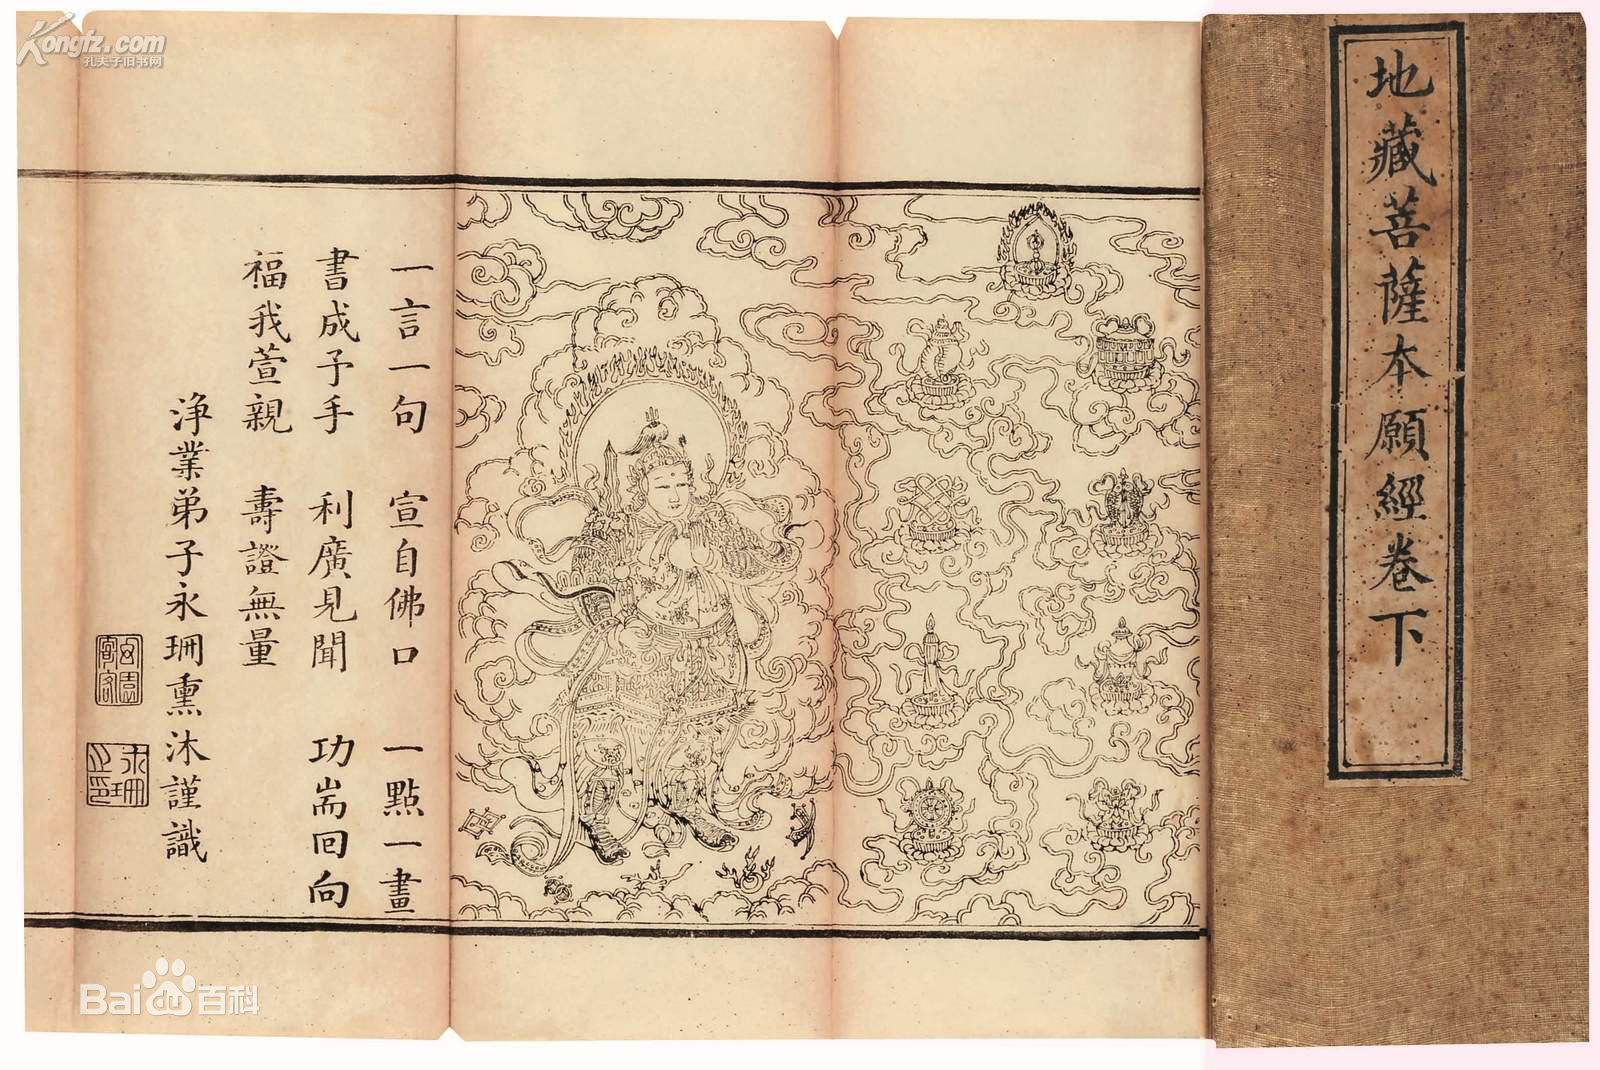 地藏菩薩本願經卷下
一言一句　宣自佛口　一點一畫
書成予手　利廣見聞　功耑回向
福我萱親　壽證無量
淨業弟子永珊熏沐謹識
永珊之印
Kongfz.com
孔夫子旧书网
Bai百科